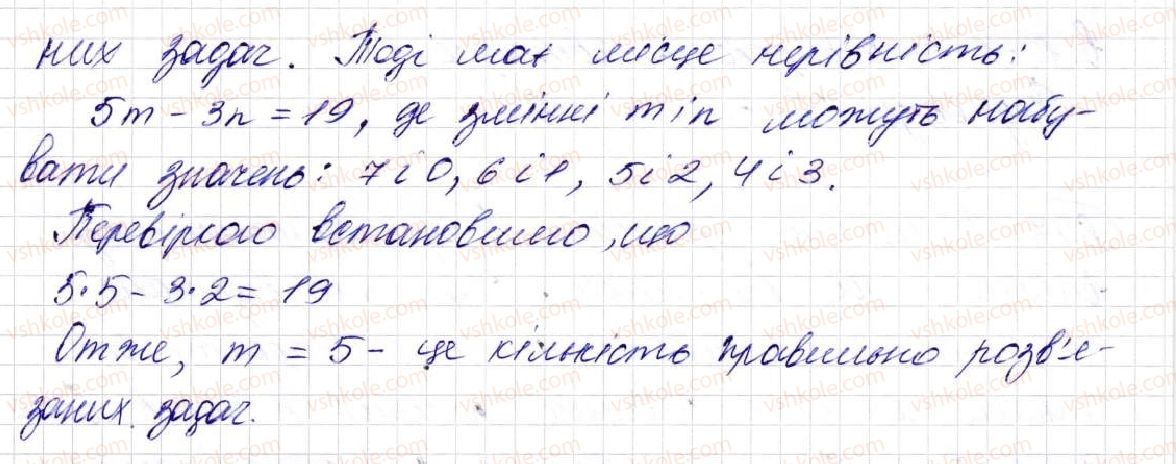 них задач. Тоді має місце нерівність:
5m - 3n = 19, де змінні m і n можуть набу-
вати значень: 7 і 0, 6 і 1, 5 і 2, 4 і 3.
Перевіркою встановлено, що
5·5 - 3·2 = 19
Отже, m = 5 - це кількість правильно розв'я-
заних задач.